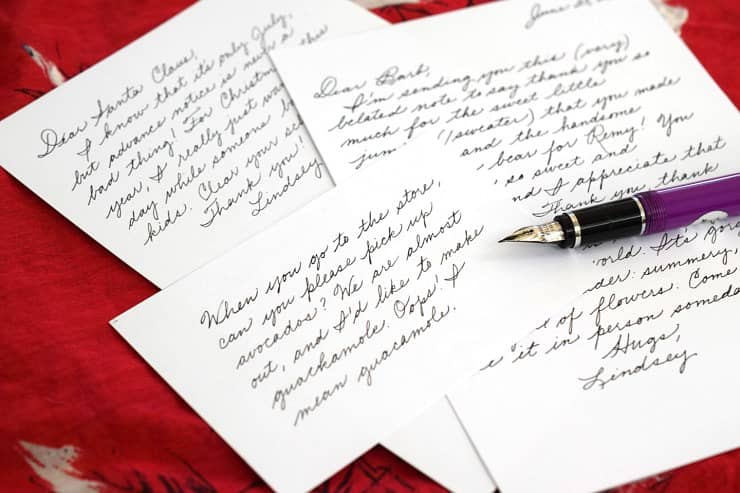 Dear Santa Claus,
I know that it's only July,
but advance notice is never a
bad thing! For Christmas this
year, I really just want
day while someone
kids. Clear your
Thank you!
Lindsey
June
Dear Barb,
I'm sending you this (very)
belated note to say thank you so
much for the sweet little
(sweater) that you made
and the handsome
bear for Remy! You
so sweet and
and I appreciate that
Thank you, thank
world. It's
summery,
of flowers. Come
it in person someday
Hugs,
Lindsey
When you go to the store,
can you please pick up
avocados? We are almost
out, and I'd like to make
guackamole. Oops! I
mean guacamole.